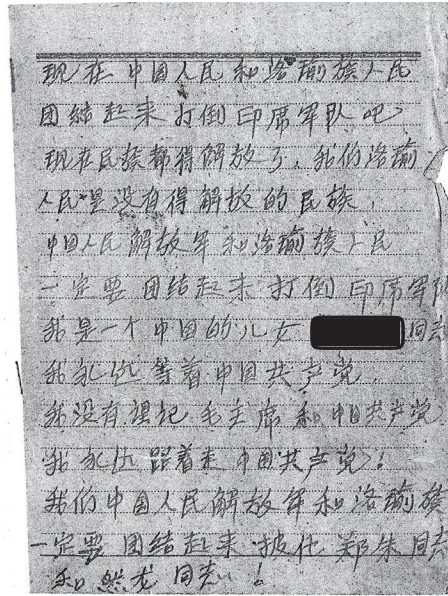 现在中国人民和洛瑜族人民
团结起来打倒印席军队吧
现在民族都得解放了，我们洛瑜
人民是没有得解放的民族，
中国人民解放军和洛瑜族人民
一定要团结起来打倒印席军队
我是一个中国的儿女 同志
我永远等着中国共产党，
我没有望记毛主席和中国共产党
我永远跟着来中国共产党！
我们中国人民解放军和洛瑜族
一定要团结起来 郑朱同志
和 龙同志！